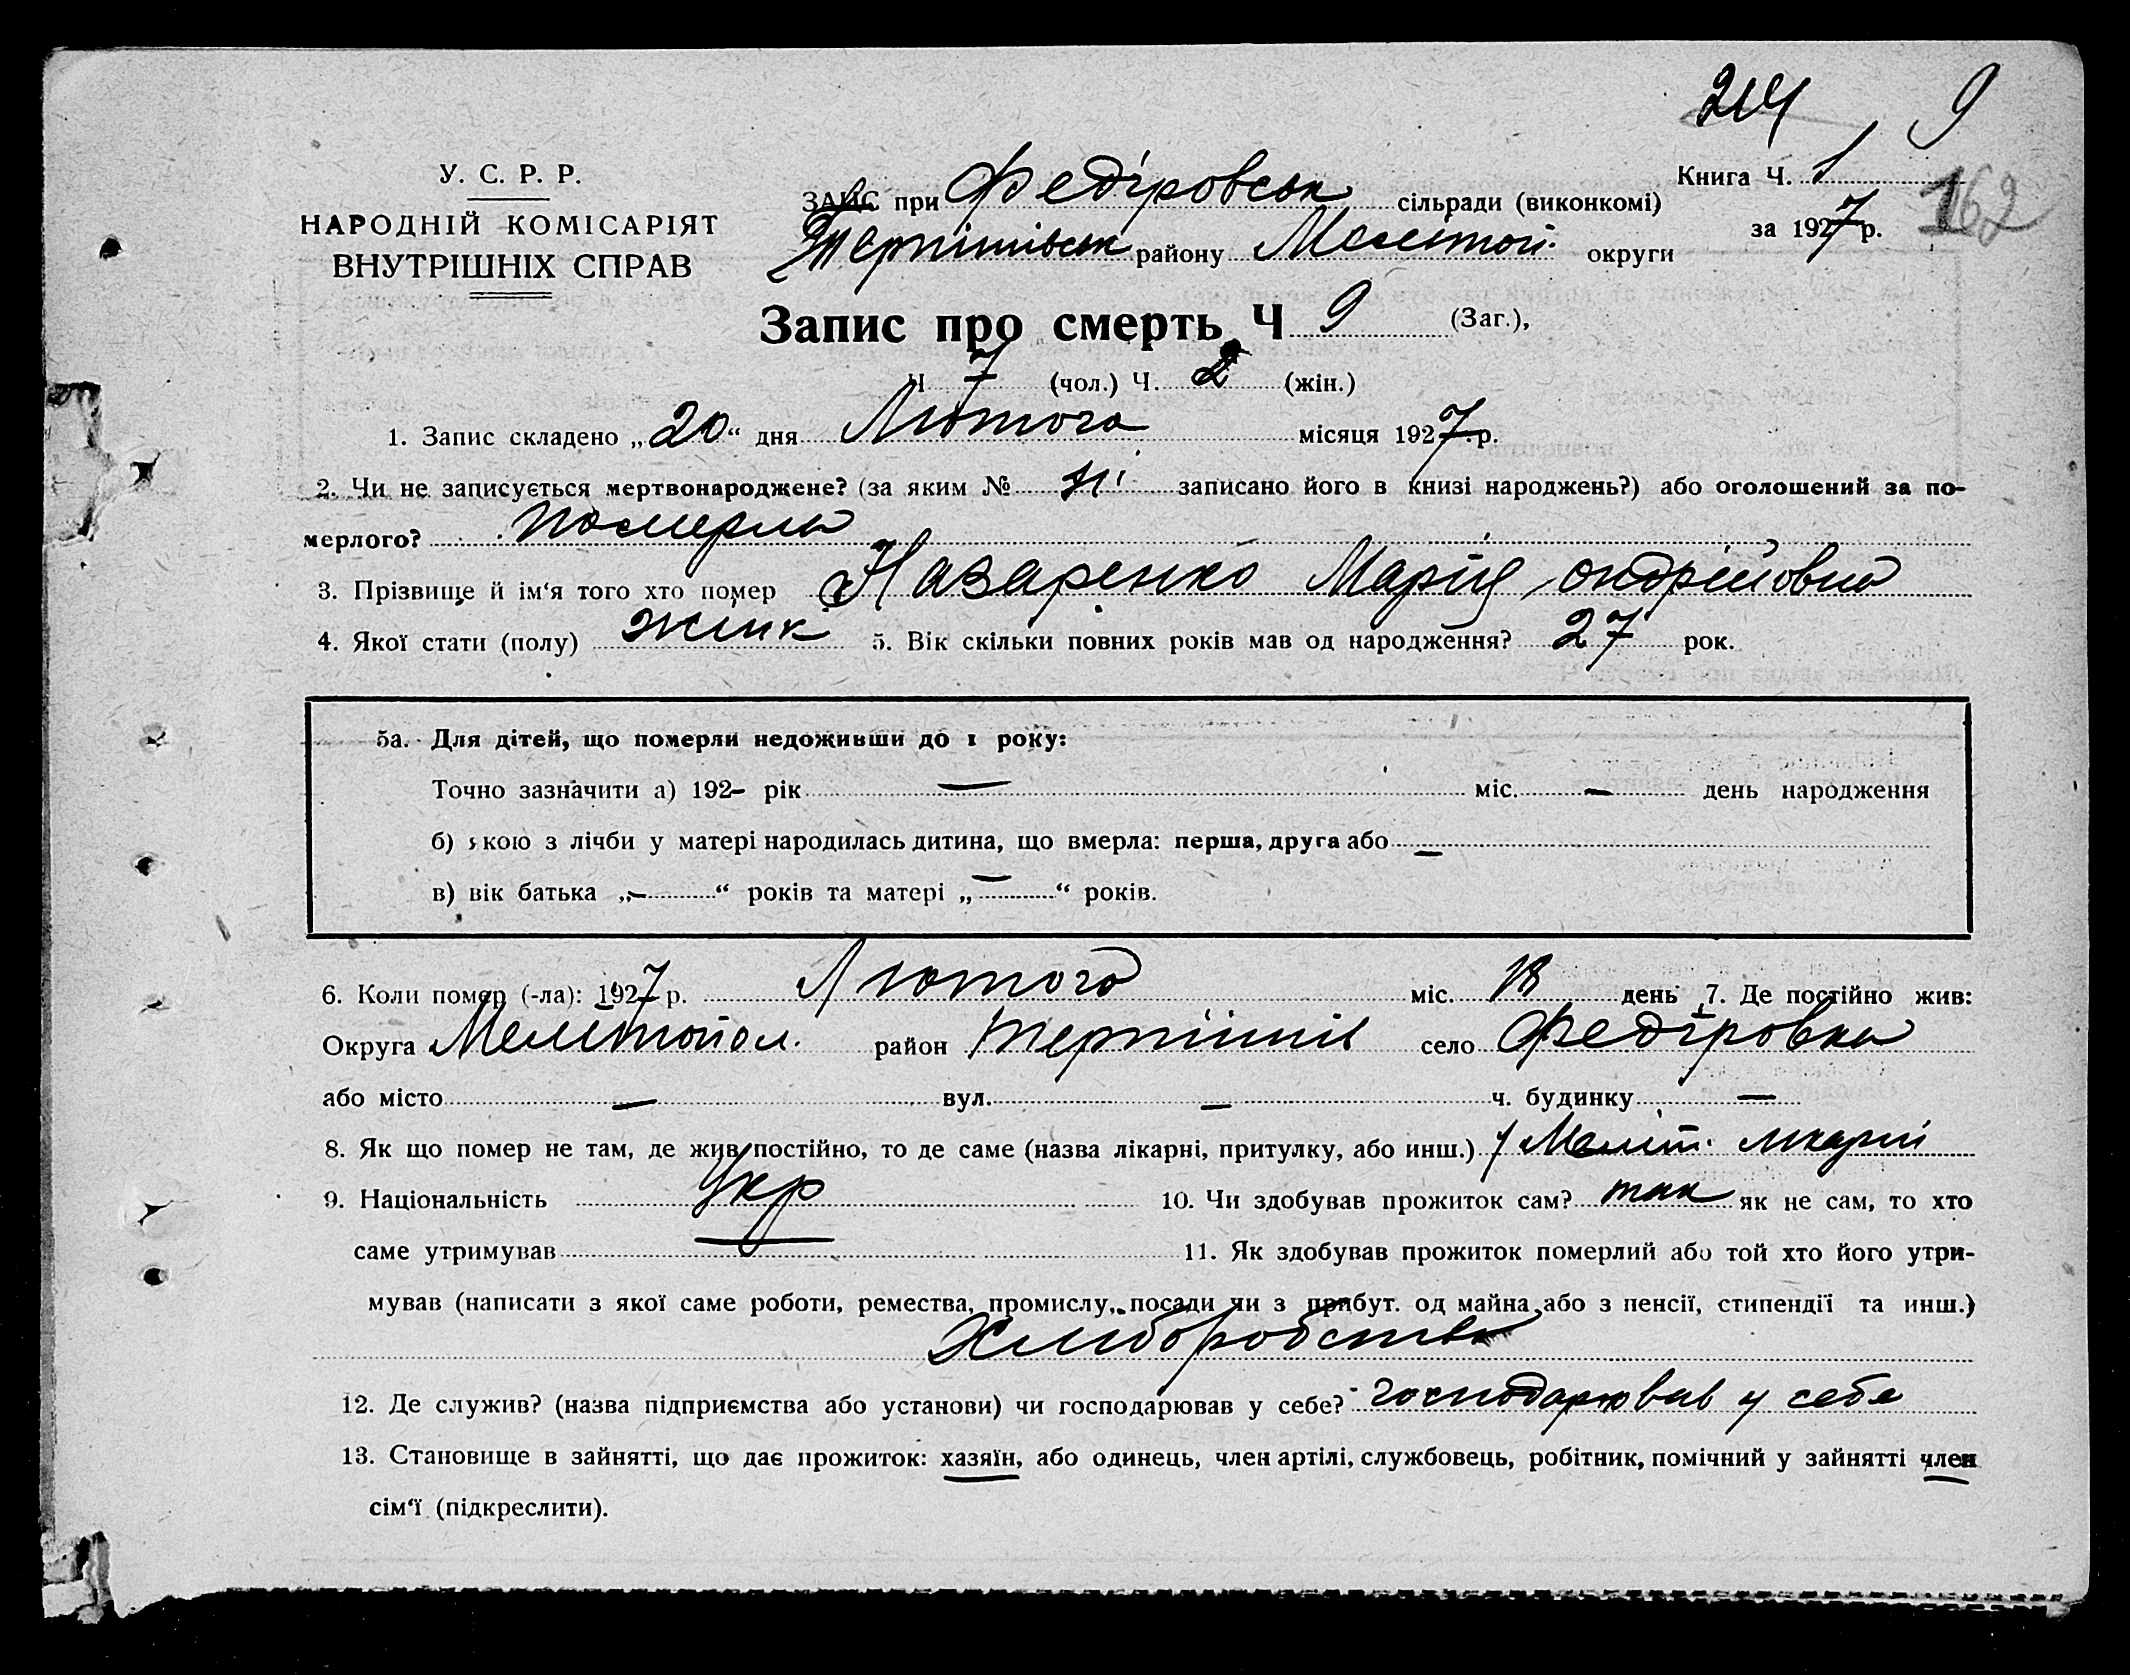 214 9
У. С. Р. Р.
НАРОДНІЙ КОМІСАРІЯТ
ВНУТРІШНІХ СПРАВ
ЗАГС при Федіровськ сільради (виконкомі)
Терпінівськ району Мелітоп. округи
Книга Ч. 1
за 1927 р.
162
Запис про смерть Ч 9 (Заг.),
Ч 7 (чол.) Ч. 2 (жін.)
1. Запис складено „20“ дня Лютого місяця 1927 р.
2. Чи не записується мертвонароджене? (за яким № Ні записано його в книзі народжень?) або оголошений за по-
мерлого? померла
3. Прізвище й ім'я того хто помер Назаренко Марія Андрійовна
4. Якої стати (полу) жінк 5. Вік скільки повних років мав од народження? 27 рок.
5а. Для дітей, що померли недоживши до 1 року:
Точно зазначити а) 192– рік — міс. — день народження
б) якою з лічби у матері народилась дитина, що вмерла: перша, друга або —
в) вік батька „—“ років та матері „—“ років.
6. Коли помер (-ла): 1927 р. Лютого міс. 18 день 7. Де постійно жив:
Округа Мелітопол. район Терпінів село Федіровка
або місто — вул. — ч. будинку —
8. Як що помер не там, де жив постійно, то де саме (назва лікарні, притулку, або инш.) у Меліт. лікарні
9. Національність Укр 10. Чи здобував прожиток сам? так як не сам, то хто
саме утримував 11. Як здобував прожиток померлий або той хто його утри-
мував (написати з якої саме роботи, ремества, промислу, посади чи з прибут. од майна або з пенсії, стипендії та инш.)
Хліборобства
12. Де служив? (назва підприємства або установи) чи господарював у себе? господарював у себе
13. Становище в зайнятті, що дає прожиток: хазяїн, або одинець, член артілі, службовець, робітник, помічний у зайнятті член
сім'ї (підкреслити).